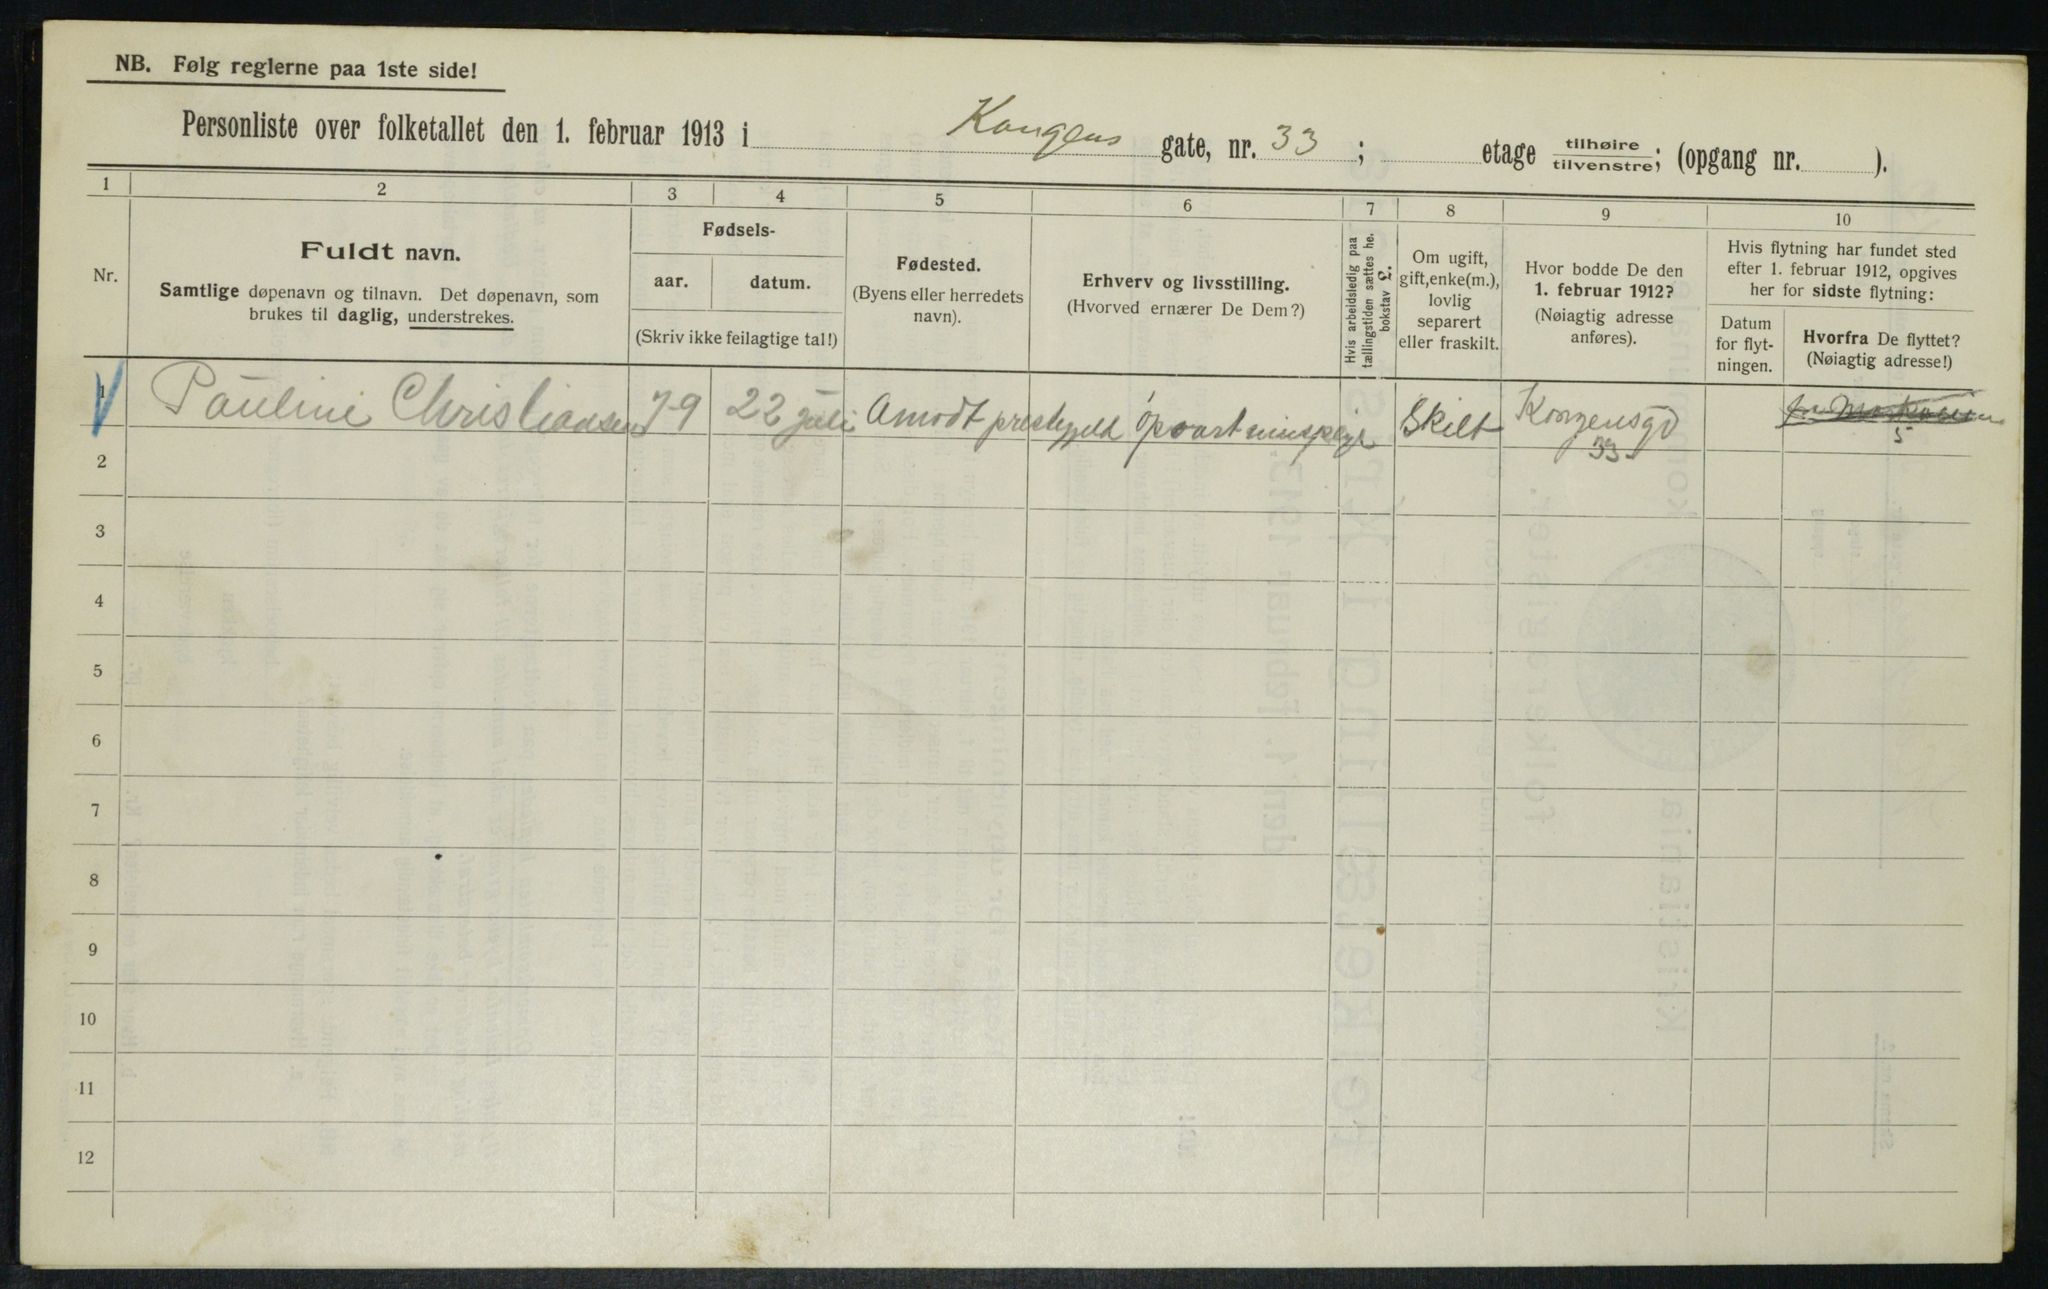 NB. Følg reglerne paa 1ste side!
Personliste over folketallet den 1. februar 1913 i Kongens gate, nr. 33 ; etage tilhøire/tilvenstre; (opgang nr. ).
1 2 3 4 5 6 7 8 9 10
Nr.
Fuldt navn.
Samtlige døpenavn og tilnavn. Det døpenavn, som
brukes til daglig, understrekes.
Fødsels-
aar. datum.
(Skriv ikke feilagtige tal!)
Fødested.
(Byens eller herredets
navn).
Erhverv og livsstilling.
(Hvorved ernærer De Dem?)
Hvis arbeidsledig paa
tællingstiden sættes he.
bokstav L.
Om ugift,
gift, enke(m.),
lovlig
separert
eller fraskilt.
Hvor bodde De den
1. februar 1912?
(Nøiagtig adresse
anføres).
Hvis flytning har fundet sted
efter 1. februar 1912, opgives
her for sidste flytning:
Datum
for flyt-
ningen.
Hvorfra De flyttet?
(Nøiagtig adresse!)
1 Pauline Christiansen 79 22 juli Amodt prestegjeld Skilt Kongensgd
33 5
2
3
4
5
6
7
8
9
10
11
12